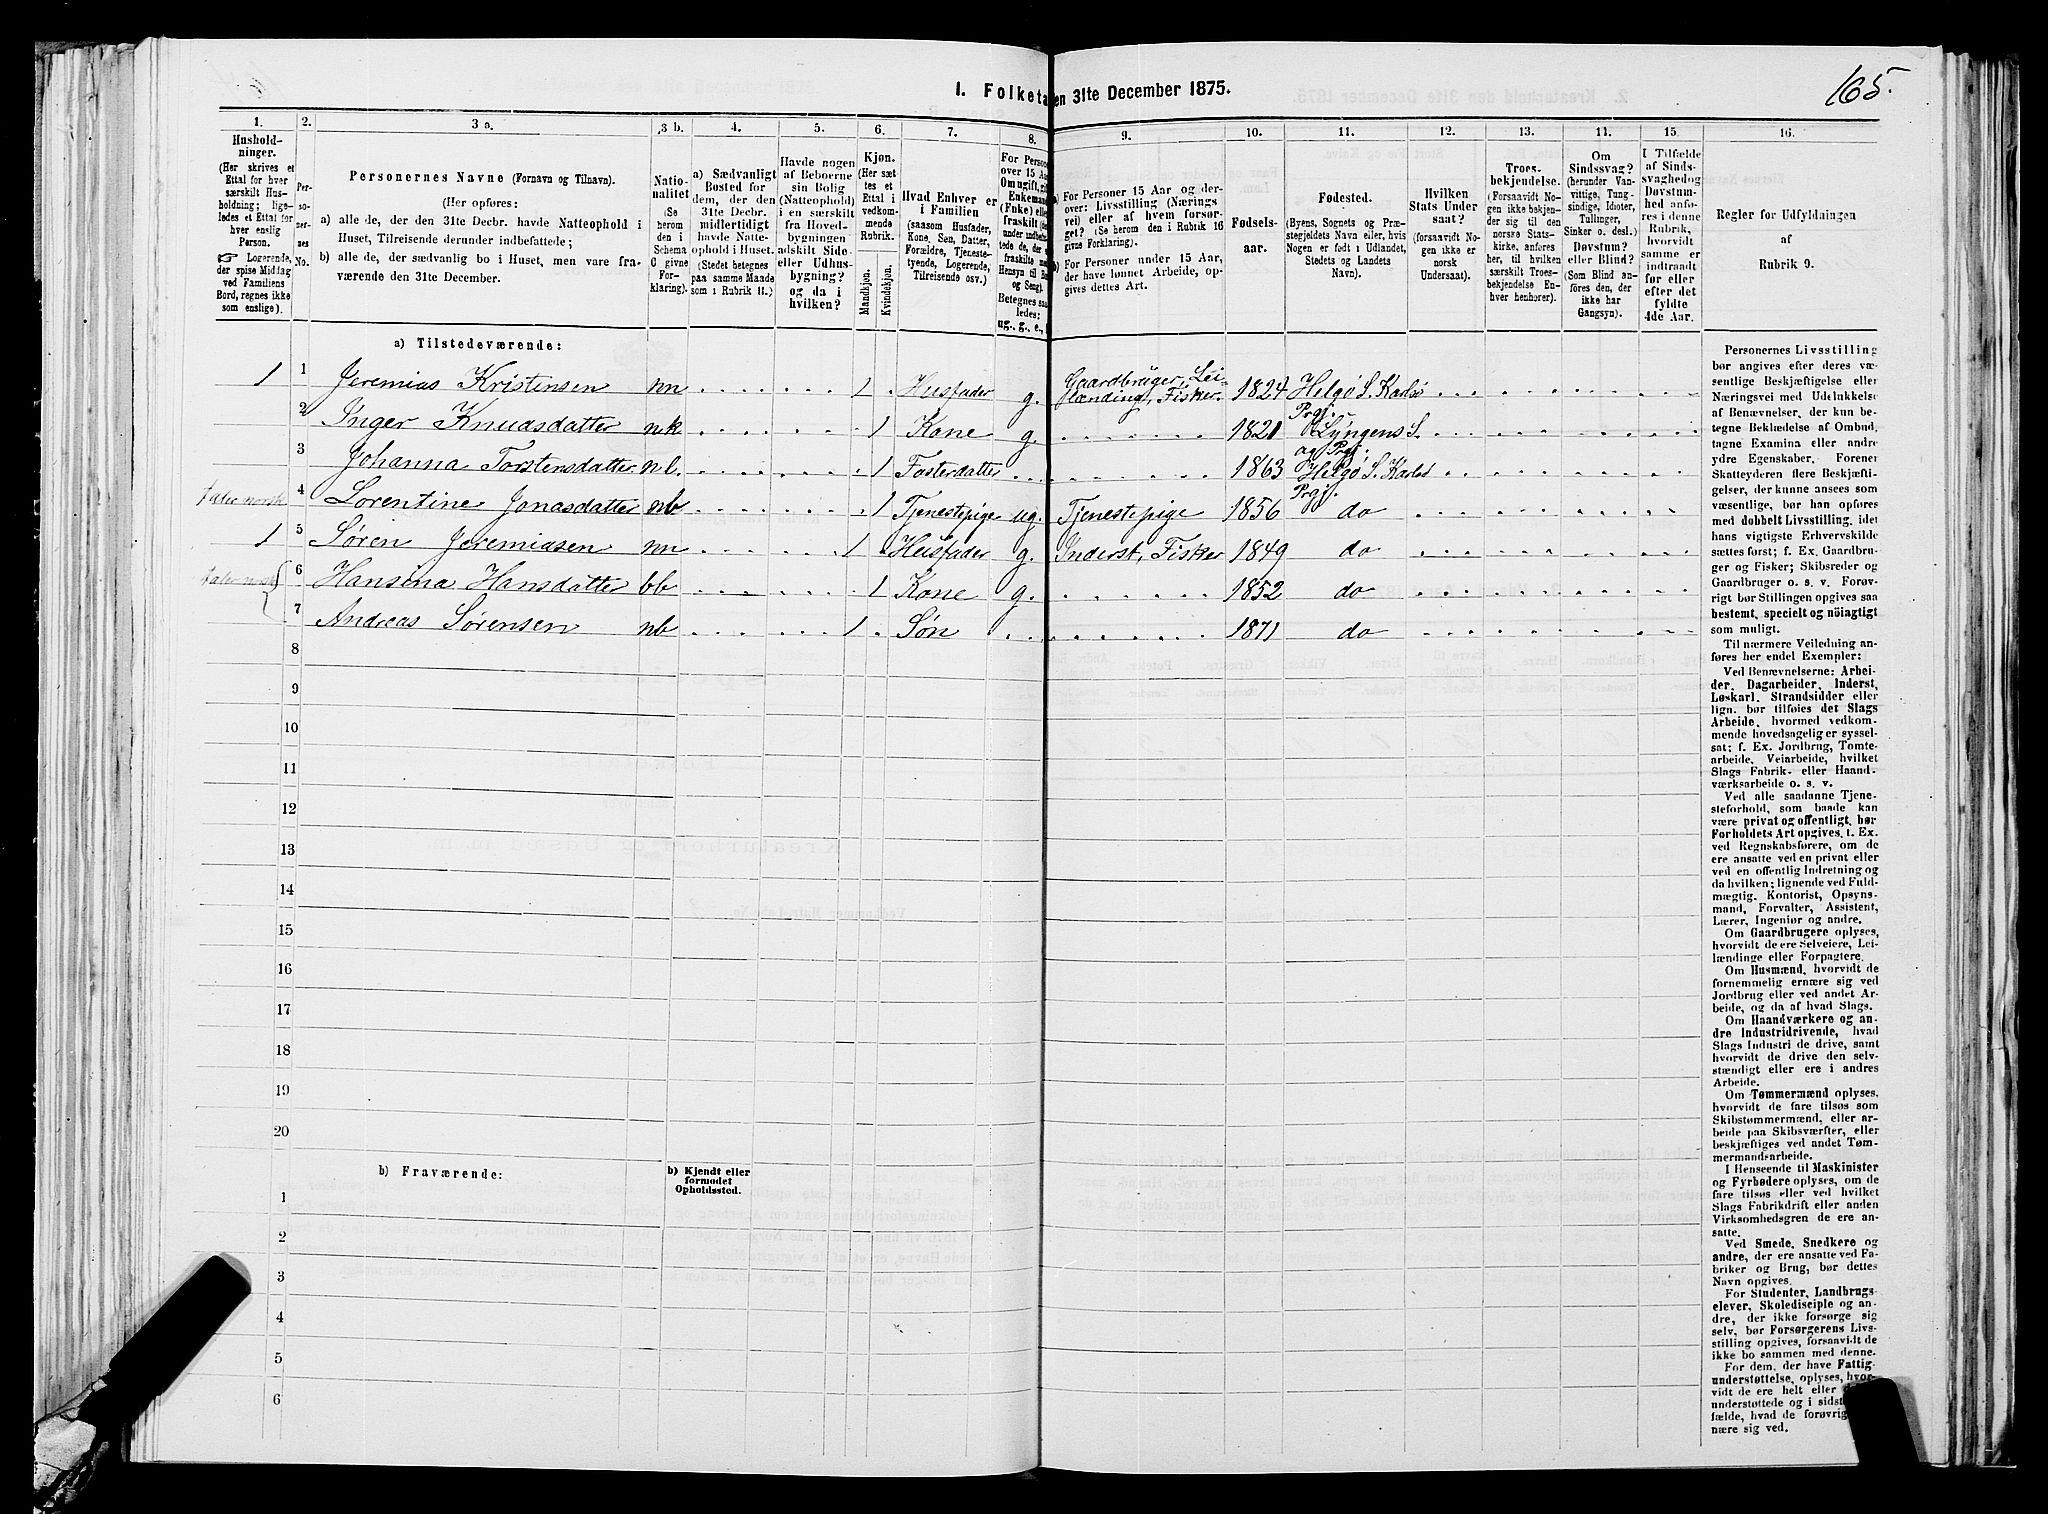 165.
1. Folketa
en 31te December 1875.
1. 2. 3 a. 3 b. 4. 5. 6. 7. 8. 9. 10. 11. 12. 13. 11. 15. 16.
Hushold-
ninger.
(Her skrives et
Ettal for hver
særskilt Hus-
holdning; lige-
ledes et Ettal for
hver enslig
Person.
☞ Logerende,
der spise Middag
ved Familiens
Bord, regnes ikke
som enslige).
Per-
so-
ner-
nes
No.
Personernes Navne (Fornavn og Tilnavn).
(Her opføres:
a) alle de, der den 31te Decbr. havde Natteophold i
Huset, Tilreisende derunder indbefattede;
b) alle de, der sædvanlig bo i Huset, men vare fra-
værende den 31te December.
Natio-
nalitet
(Se
herom
den i
Schema
C givne
For-
klaring).
a) Sædvanligt
Bosted for
dem, der den
31te Decbr.
midlertidigt
havde Natte-
ophold i Huset.
(Stedet betegnes
paa samme Maade
som i Rubrik 11.)
Havde nogen
af Beboerne
sin Bolig
(Natteophold)
i en særskilt
fra Hoved-
bygningen
adskilt Side-
eller Udhus-
bygning?
og da i
hvilken?
Kjøn.
(Her sæt-
tes et
Ettal i
vedkom-
mende
Rubrik.
Mandkjøn.
Kvindekjøn.
Hvad Enhver er
i Familien
(saasom Husfader,
Kone, Søn, Datter,
Forældre, Tjeneste-
tyende, Logerende,
Tilreisende osv.)
For Person
over 15 Aa
Om ugift, gi
Enkeman
(Fnke) elle
fraskilt
Betegnes saa
ledes:
ug., g., e.,
a) For Personer 15 Aar og der-
over: Livsstilling (Nærings
vei) eller af hvem forsør-
get? (Se herom den i Rubrik 16
givne Forklaring).
b) For Personer under 15 Aar,
der have lønnet Arbeide, op-
gives dettes Art.
Fødsels-
aar.
Fødested.
(Byens, Sognets og Præ-
stegjeldets Navn eller, hvis
Nogen er født i Udlandet,
Stedets og Landets
Navn).
Hvilken
Stats Under
saat?
(forsaavidt No-
gen ikke er
norsk
Undersaat).
Troes-
bekjendelse.
(Forsaavidt No-
gen ikke bekjen-
der sig til den
norske Stats-
kirke, anføres
her, til hvilken
særskilt Troes-
bekjendelse En-
hver henhorer).
Om
Sindssvag?
(herunder Van-
vittige, Tung-
sindige, Idioter,
Tullinger,
Sinker o. desl.)
Døvstum?
eller Blind?
(Som Blind an-
føres den, der
ikke har
Gangsyn).
I Tilfælde
af Sinds-
svaghed og
Døvstum-
hed anfø-
res i denne
Rubrik,
hvorvidt
samme er
indtraadt
før eller
efter det
fyldte
4de Aar.
Regler for Udfyldningen
af
Rubrik 9.
a) Tilstedeværende:
1 1 Jeremias Kristensen nn 1 Husfader g. Gaardbruger, Lei-
lændingt, Fisker. 1824 Helgø S. Karlsø
Prgj.
2 Inger Knudsdatter nk 1 Kone g. 1821 Lyngens S.
og Prgj.
3 Johanna Torstensdatter nl. 1 Fosterdatter 1863 Helgø S. Karlsø
Prgj.
taler norsk 4 Lorentine Jonasdatter nb 1 Tjenestepige ug. Tjenestepige 1856 do
1 5 Søren Jeremiasen nn 1 Husfader g. Inderst, Fisker 1849 do
taler norsk 6 Hansina Hansdatter bb 1 Kone g. 1852 do
7 Andreas Sørensen nb 1 Søn 1871 do
8
9
10
11
12
13
14
15
16
17
18
19
20
b) Fraværende:
b) Kjendt eller
formodet
Opholdssted.
1
2
3
4
5
6
Personernes Livsstilling
bør angives efter deres væ-
sentlige Beskjæftigelse eller
Næringsvei med Udelukkelse
af Benævnelser, der kun be-
tegne Beklædelse af Ombud,
tagne Examina eller andre
ydre Egenskaber. Forener
Skatteyderen flere Beskjæfti-
gelser, der kunne ansees som
væsentlige, bør han opføres
med dobbelt Livsstilling, idet
hans vigtigste Erhvervskilde
sættes først; f. Ex. Gaardbru-
ger og Fisker; Skibsreder og
Gaardbruger o. s. v. Forøv-
rigt bør Stillingen opgives saa
bestemt, specielt og nöiagtigt
som muligt.
Til nærmere Veiledning an-
føres her endel Exempler:
Ved Benævnelserne: Arbei-
der, Dagarbeider, Inderst,
Løskarl, Strandsidder eller
lign. bør tilføies det Slags
Arbeide, hvormed vedkom-
mende hovedsagelig er syssel-
sat; f. Ex. Jordbrug, Tomte-
arbeide, Veiarbeide, hvilket
Slags Fabrik- eller Haand-
værksarbeide o. s. v.
Ved alle saadanne Tjene-
steforhold, som baade kan
være privat og offentligt, bør
Forholdets Art opgives, t. Ex.
ved Regnskabsførere, om de
ere ansatte ved en privat eller
ved en offentlig Indretning og
da hvilken; lignende ved Fuld-
mægtig, Kontorist, Opsyns-
mand, Forvalter, Assistent,
Lærer, Ingeniør og andre.
Om Gaardbrugere oplyses,
hvorvidt de ere Selveiere, Lei-
lændinge eller Forpagtere.
Om Husmænd, hvorvidt de
fornemmelig ernære sig ved
Jordbrug eller ved andet Ar-
beide, og da af hvad Slags.
Om Haandværkere og an-
dre Industridrivende, hvad
Slags Industri de drive, samt
hvorvidt de drive den selv-
stændigt eller ere i andres
Arbeide.
Om Tømmermænd oplyses,
hvorvidt de fare tilsøs som
Skibstømmermænd, eller ar-
beide paa Skibsværfter, eller
beskjæftiges ved andet Tøm-
mermandsarbeide.
I Henseende til Maskinister
og Fyrbødere oplyses, om de
fare tilsøs eller ved hvilket
Slags Fabrikdrift eller anden
Virksomhedsgren de ere an-
satte.
Ved Smede, Snedkere og
andre, der ere ansatte ved Fa-
briker og Brug, bør dettes
Navn opgives.
For Studenter, Landbrugs-
elever, Skoledisciple og an-
dre, der ikke forsørge sig
selv, bør Forsørgerens Livs-
stilling opgives, forsaavidt de
ikke bo sammen med denne.
For dem, der have Fattig-
understøttelse, oplyses, hvor-
vidt de ere helt eller
understøttede og i sidst
fælde, hvad de forøvrig
nære sig ved.